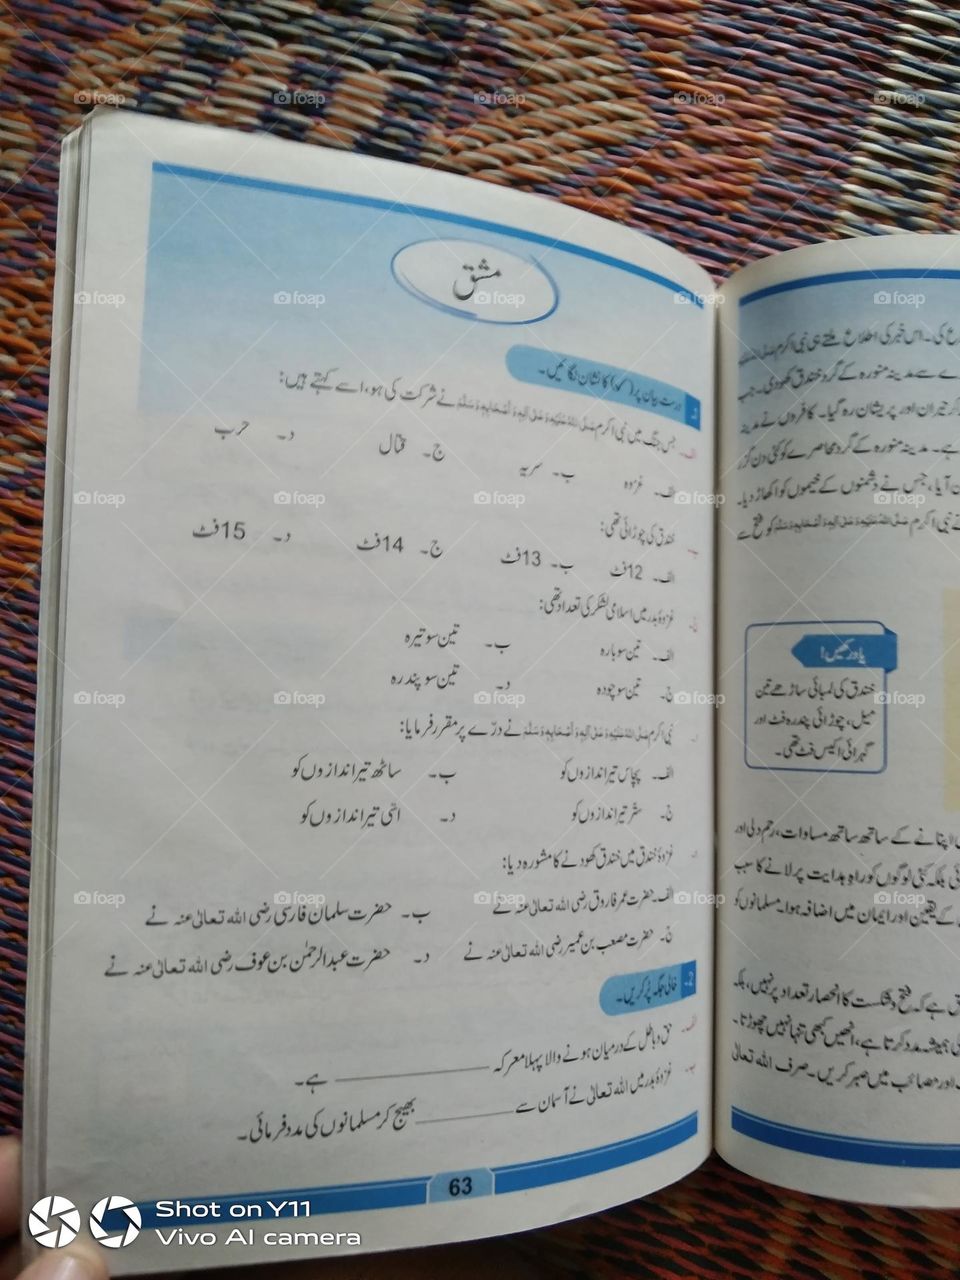 مشق
1۔ درست بیان پر (✓) کا نشان لگائیں۔
الف۔ جس جنگ میں نبی اکرم صَلَّى اللهُ عَلَيْهِ وَعَلٰى آلِهٖ وَأَصْحَابِهٖ وَسَلَّمَ نے شرکت کی ہو، اسے کہتے ہیں:
الف۔ غزوہ ب۔ سریہ ج۔ قتال د۔ حرب
ب۔ خندق کی چوڑائی تھی:
الف۔ 12فٹ ب۔ 13فٹ ج۔ 14فٹ د۔ 15فٹ
ج۔ غزوۂ بدر میں اسلامی لشکر کی تعداد تھی:
الف۔ تین سو بارہ ب۔ تین سو تیرہ
ج۔ تین سو چودہ د۔ تین سو پندرہ
نبی اکرم صَلَّى اللهُ عَلَيْهِ وَعَلٰى آلِهٖ وَأَصْحَابِهٖ وَسَلَّمَ نے درّے پر مقرر فرمایا:
الف۔ پچاس تیر اندازوں کو ب۔ ساٹھ تیر اندازوں کو
ج۔ ستر تیر اندازوں کو د۔ اسّی تیر اندازوں کو
غزوۂ خندق میں خندق کھودنے کا مشورہ دیا:
الف۔ حضرت عمر فاروق رضی اللہ تعالیٰ عنہ نے ب۔ حضرت سلمان فارسی رضی اللہ تعالیٰ عنہ نے
ج۔ حضرت مصعب بن عمیر رضی اللہ تعالیٰ عنہ نے د۔ حضرت عبدالرحمٰن بن عوف رضی اللہ تعالیٰ عنہ نے
2۔ خالی جگہ پُر کریں۔
الف۔ حق و باطل کے درمیان ہونے والا پہلا معرکہ ________ ہے۔
ب۔ غزوۂ بدر میں اللہ تعالیٰ نے آسمان سے ________ بھیج کر مسلمانوں کی مدد فرمائی۔
63
ع کی۔ اس خبر کی اطلاع ملتے ہی نبی اکرم
ے سے مدینہ منورہ کے گرد خندق کھودی۔ جب
کر حیران اور پریشان رہ گیا۔ کافروں نے مدینہ
ہے۔ مدینہ منورہ کے گرد محاصرے کو کئی دن گزر
ن آیا، جس نے دشمنوں کے خیموں کو اکھاڑ دیا۔
نے نبی اکرم صَلَّى اللهُ عَلَيْهِ وَعَلٰى آلِهٖ وَأَصْحَابِهٖ وَسَلَّمَ کو فتح سے
یاد رکھیں!
خندق کی لمبائی ساڑھے تین
میل، چوڑائی پندرہ فٹ اور
گہرائی اکیس فٹ تھی۔
اپنانے کے ساتھ ساتھ مساوات، رحم دلی اور
ئی بلکہ کئی لوگوں کو راہِ ہدایت پر لانے کا سبب
کے یقین اور ایمان میں اضافہ ہوا۔ مسلمانوں کو
ہے کہ فتح و شکست کا انحصار تعداد پر نہیں، بلکہ
کی ہمیشہ مدد کرتا ہے، انھیں کبھی تنہا نہیں چھوڑتا۔
اور مصائب میں صبر کریں۔ صرف اللہ تعالیٰ
Shot on Y11
Vivo AI camera